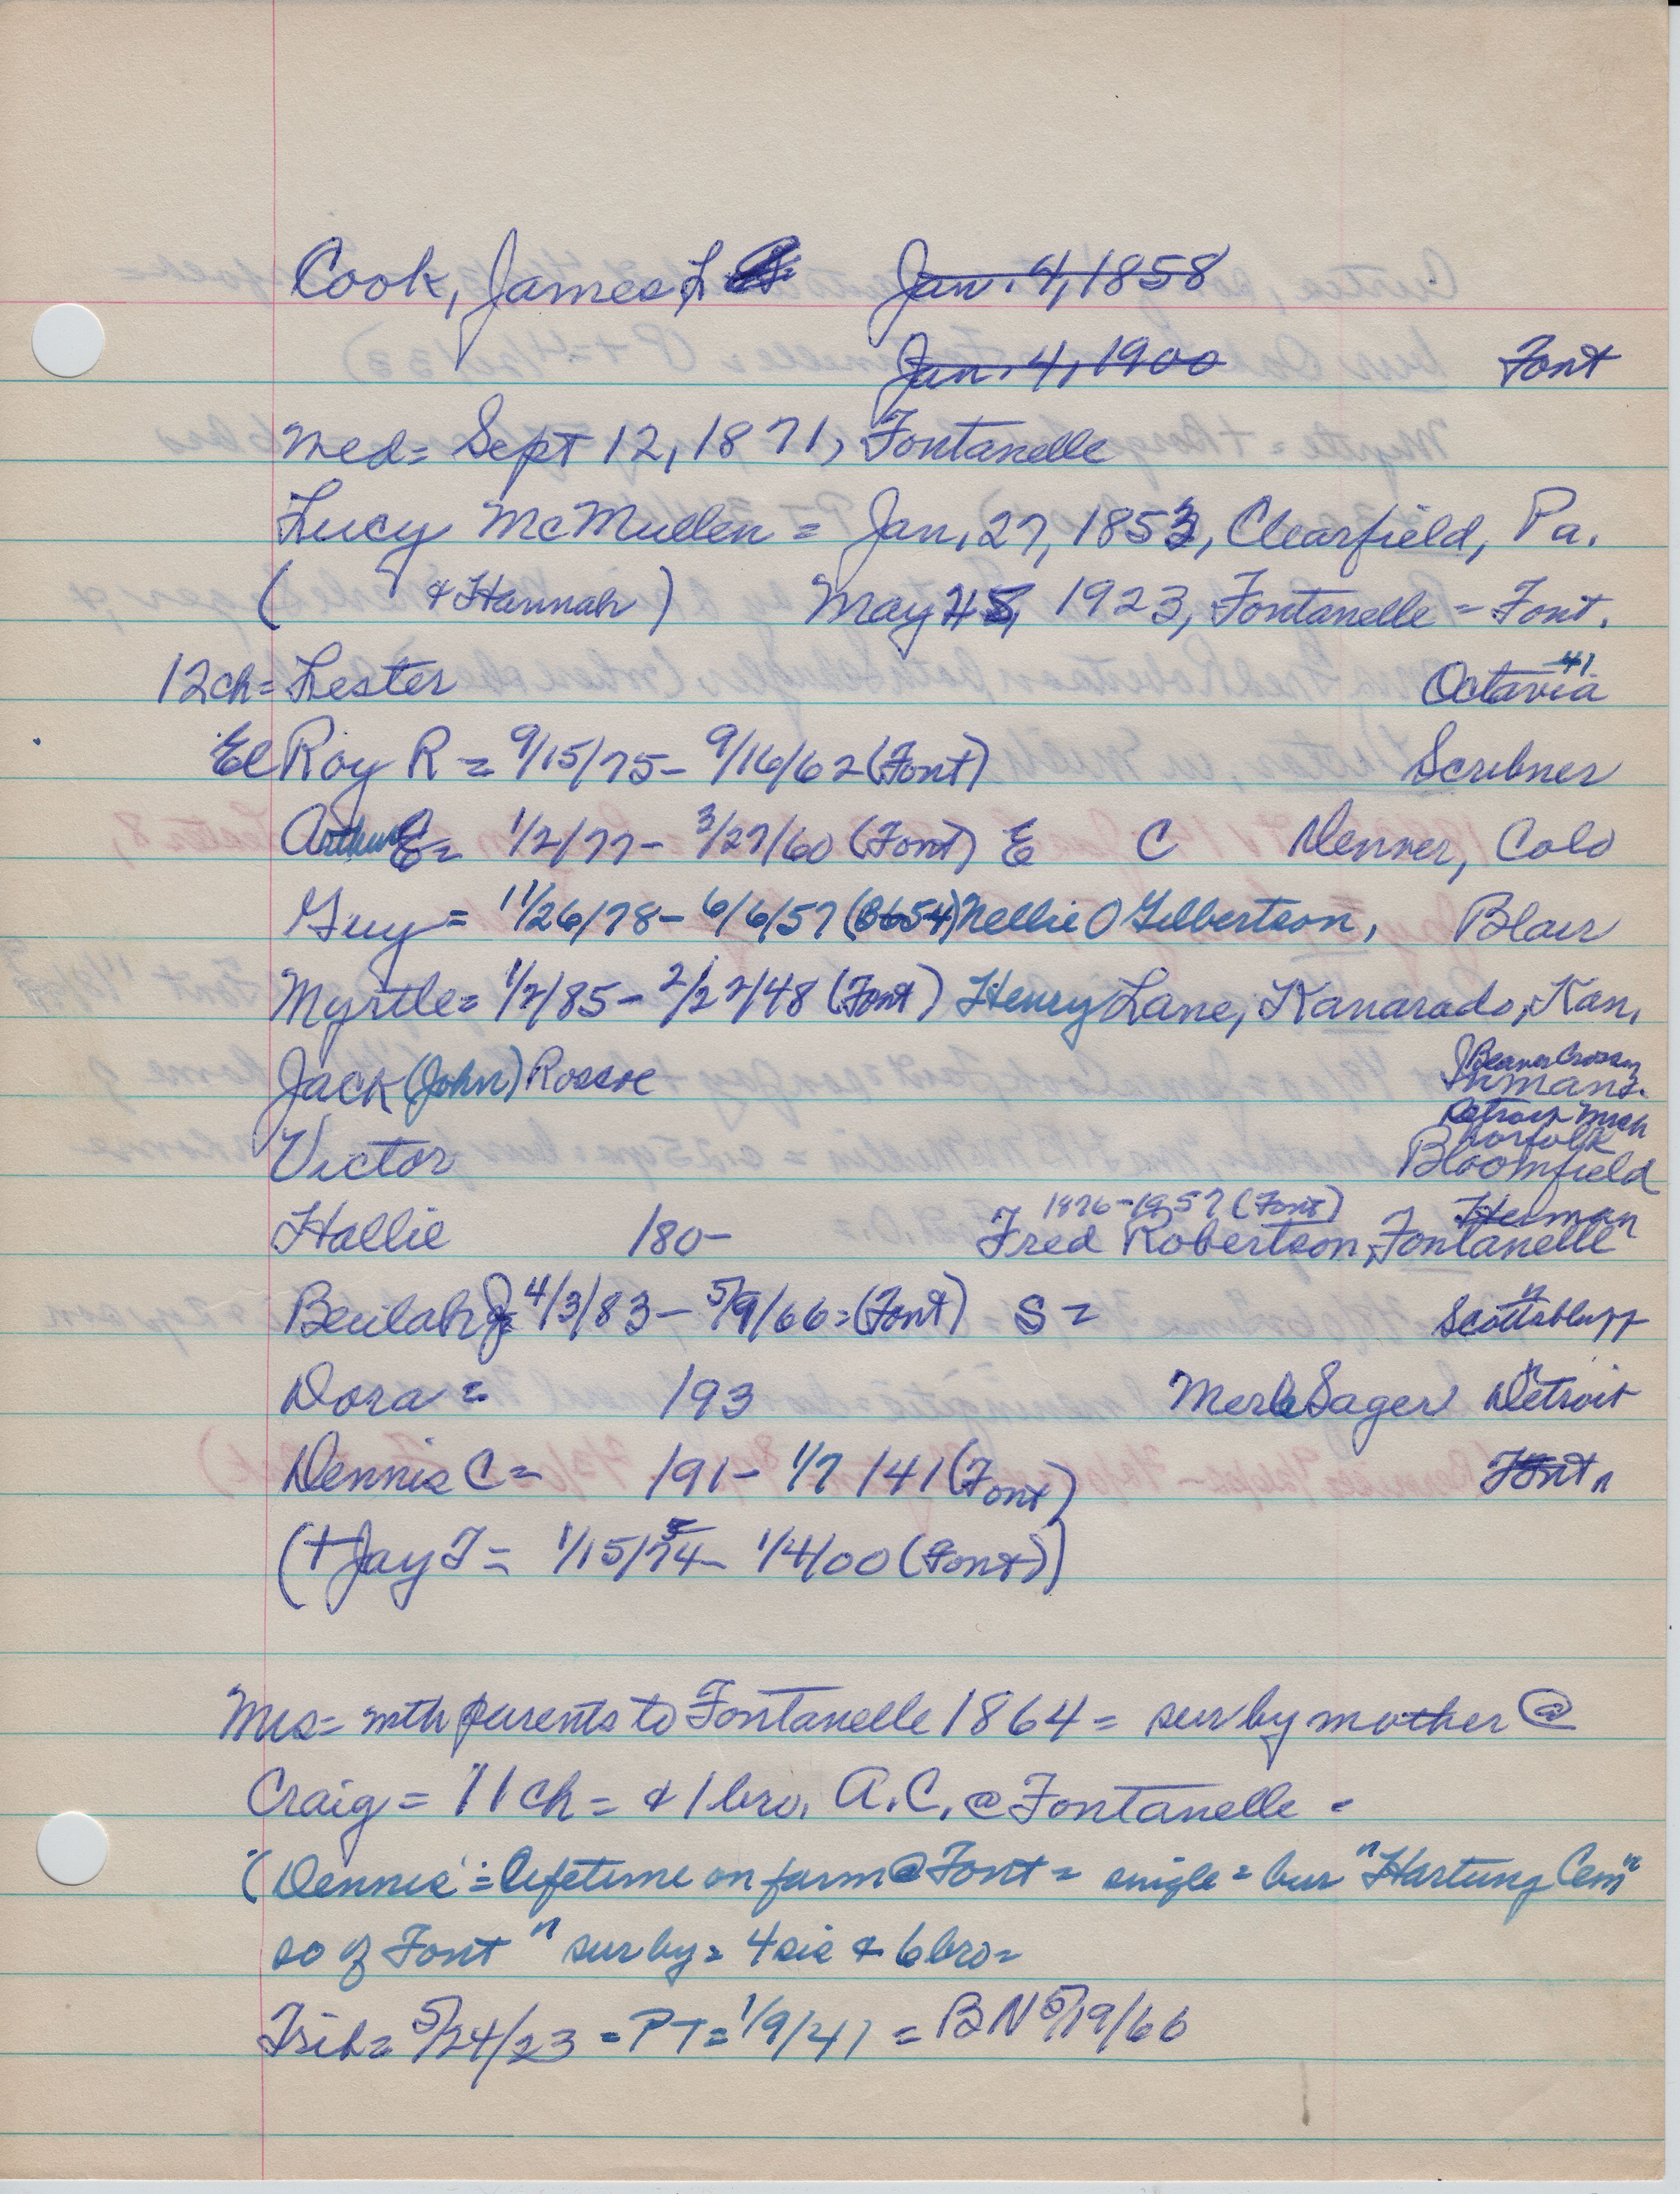 Cook, James L Jan. 4, 1858
Jan. 4, 1900 Font
Med= Sept 12, 1871, Fontanelle
Lucy McMullen = Jan. 27, 1853, Clearfield, Pa.
( & Hannah) May 1923, Fontanelle = Font.
12ch= Lester Octavia 41
El Roy R = 9/15/75- 9/16/62 (Font) Scribner
Arthur E= 1/2/77- 3/27/60 (Font) E C Denver, Colo
Guy = 11/26/78- 6/6/57 (8654) Nellie O Gilbertson, Blair
Myrtle= 1/2/85- 2/27/48 (Font) Henry Lane, Kanarado, Kan.
Beaver Crossing
Jack (John) Roscoe Inman
Detroit Mich
Norfolk
Victor Bloomfield
1876-1957 (Font) Herman
Hallie 180- Fred Robertson, Fontanelle
Beulah J= 4/3/83- 5/9/66= (Font) S= Scottsbluff
Dora = 193 Merle Sager Detroit "
Dennis C= 191- 1/7/41 (Font) Font "
(+ Jay F= 1/15/74- 1/4/00 (Font))
Mrs= with parents to Fontanelle 1864= sur by mother @
Craig = 11 ch = & 1 bro. A.C. @ Fontanelle =
(Dennis = lifetime on farm @ Font = single = bur "Hartung Cem"
so of Font " sur by= 4 sis & 6 bro=
Trib= 5/24/23 = PT= 1/9/41 = BN 5/19/66